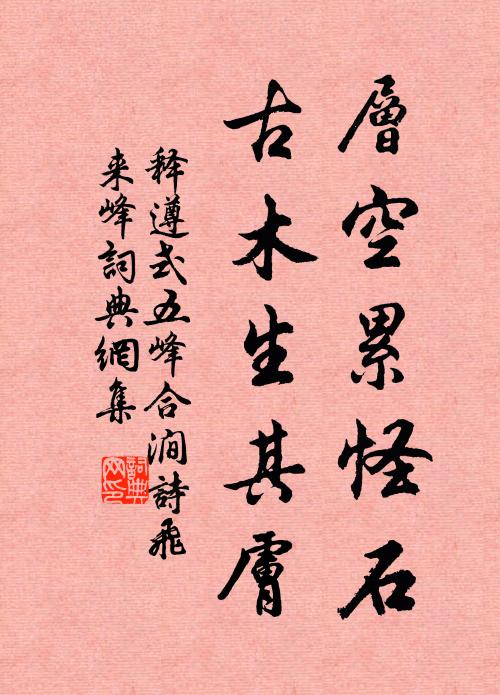 層空累怪石
古木生其膚
释遵式五峰合澗詩飛
来峰詞典網集
詞典
网印